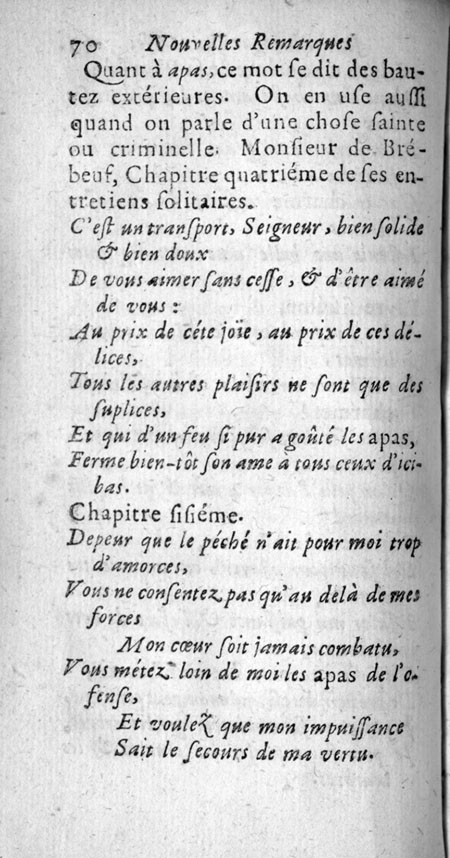 70 Nouvelles Remarques
Quant à apas, ce mot ſe dit des bau-
tez extérieures. On en uſe auſſi
quand on parle d'une choſe ſainte
ou criminelle. Monſieur de Bré-
beuf, Chapitre quatriéme de ſes en-
tretiens ſolitaires.
C'eſt un tranſport, Seigneur, bien ſolide
& bien doux
De vous aimer ſans ceſſe, & d'être aimé
de vous :
Au prix de céte joïe, au prix de ces dé-
lices,
Tous les autres plaiſirs ne ſont que des
ſuplices,
Et qui d'un feu ſi pur a goûté les apas,
Ferme bien-tôt ſon ame à tous ceux d'ici-
bas.
Chapitre ſiſiéme.
Depeur que le péché n'ait pour moi trop
d'amorces,
Vous ne conſentez pas qu'au delà de mes
forces
Mon cœur ſoit jamais combatu,
Vous métez loin de moi les apas de l'o-
fenſe,
Et voulez que mon impuiſſance
Sait le ſecours de ma vertu.